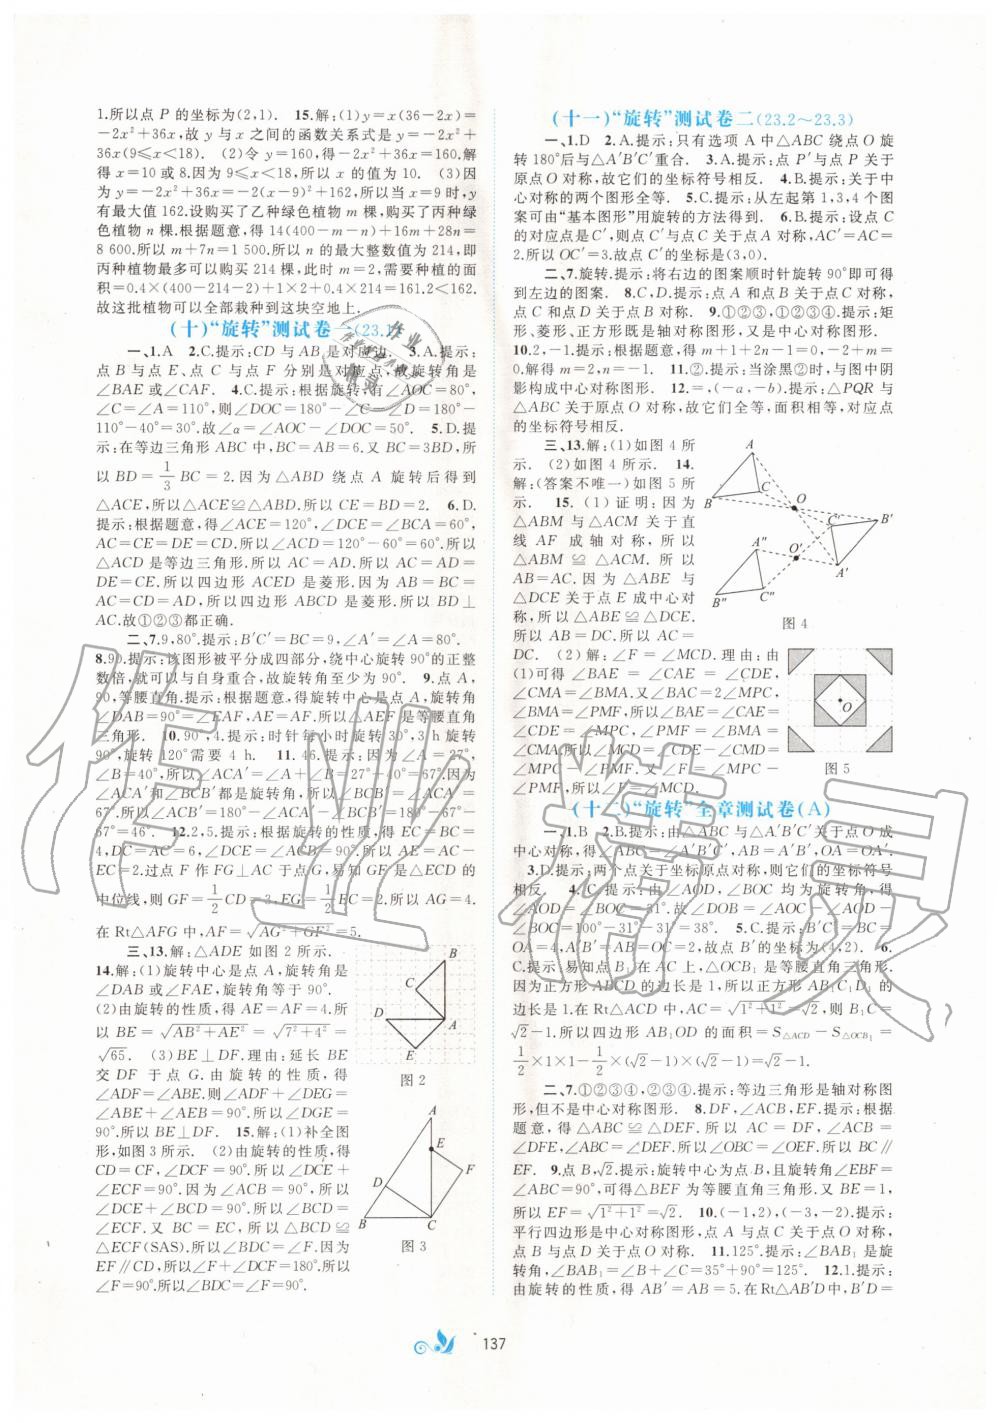 1.所以点 P 的坐标为(2,1). 15.解:(1)y=x(36-2x)=
-2x²+36x,故 y 与 x 之间的函数关系式是 y=-2x²+
36x(9≤x<18). (2)令 y=160,得-2x²+36x=160.解
得 x=10 或 8.因为 9≤x<18,所以 x 的值为 10. (3)因
为 y=-2x²+36x=-2(x-9)²+162,所以当 x=9 时,y
有最大值 162.设购买了乙种绿色植物 m 棵,购买了丙种绿
色植物 n 棵.根据题意,得 14(400-m-n)+16m+28n=
8 600.所以 m+7n=1 500.所以 n 的最大整数值为 214,即
丙种植物最多可以购买 214 棵,此时 m=2,需要种植的面
积=0.4×(400-214-2)+1×2+0.4×214=161.2<162.
故这批植物可以全部栽种到这块空地上.
(十)“旋转”测试卷一(23.1)
一、1.A 2.C.提示:CD 与 AB 是对应边. 3.A.提示:
点 B 与点 E、点 C 与点 F 分别是对应点,故旋转角是
∠BAE 或∠CAF. 4.C.提示:根据旋转,有∠AOC=80°,
∠C=∠A=110°,则∠DOC=180°-∠C-∠D=180°-
110°-40°=30°.故∠α=∠AOC-∠DOC=50°. 5.D.提
示:在等边三角形 ABC 中,BC=AB=6.又 BC=3BD,所
以 BD=1/3 BC=2.因为△ABD 绕点 A 旋转后得到
△ACE,所以△ACE≌△ABD.所以 CE=BD=2. 6.D.
提示:根据题意,得∠ACE=120°,∠DCE=∠BCA=60°,
AC=CE=DE=CD.所以∠ACD=120°-60°=60°.所以
△ACD 是等边三角形.所以 AC=AD.所以 AC=AD=
DE=CE.所以四边形 ACED 是菱形.因为 AB=BC=
AC=CD=AD,所以四边形 ABCD 是菱形.所以 BD⊥
AC.故①②③都正确.
二、7.9,80°.提示:B′C′=BC=9,∠A′=∠A=80°.
8.90.提示:该图形被平分成四部分,绕中心旋转 90°的正整
数倍,就可以与自身重合,故旋转角至少为 90°. 9.点 A,
90,等腰直角.提示:根据题意,得旋转中心是点 A,旋转角
∠DAB=90°=∠EAF,AE=AF.所以△AEF 是等腰直角
三角形. 10.90,4.提示:时针每小时旋转 30°,3 h 旋转
90°,旋转 120°需要 4 h. 11.46.提示:因为∠A=27°,
∠B=40°,所以∠ACA′=∠A+∠B=27°+40°=67°.因为
∠ACA′和∠BCB′都是旋转角,所以∠BCB′=∠ACA′=
67°.所以∠ACB′=180°-∠ACA′-∠BCB′=180°-67°-
67°=46°. 12.2,5.提示:根据旋转的性质,得 EC=BC=
4,DC=AC=6,∠DCE=∠ACB=90°.所以 AE=AC-
EC=2.过点 F 作 FG⊥AC 于点 G,易知 GF 是△ECD 的
中位线,则 GF=1/2 CD=3,EG=1/2 EC=2.所以 AG=4.
在 Rt△AFG 中,AF=√AG²+GF²=5.
三、13.解:△ADE 如图 2 所示.
14.解:(1)旋转中心是点 A,旋转角是
∠DAB 或∠FAE,旋转角等于 90°.
(2)由旋转的性质,得 AE=AF=4.所
以 BE=√AB²+AE²=√7²+4²=
√65. (3)BE⊥DF.理由:延长 BE
交 DF 于点 G.由旋转的性质,得
∠ADF=∠ABE.则∠ADF+∠DEG=
∠ABE+∠AEB=90°.所以∠DGE=
90°.所以 BE⊥DF. 15.解:(1)补全图
形,如图 3 所示. (2)由旋转的性质,得
CD=CF,∠DCF=90°.所以∠DCE+
∠ECF=90°.因为∠ACB=90°,所以
∠DCE+∠BCD=90°.所以∠BCD=
∠ECF.又 BC=EC,所以△BDC≌
△ECF(SAS).所以∠BDC=∠F.因为
EF∥CD,所以∠F+∠DCF=180°.所以
∠F=90°.所以∠BDC=∠F=90°.
B
C
A
D
E
图 2
A
E
F
D
B
C
图 3
(十一)“旋转”测试卷二(23.2~23.3)
一、1.D 2.A.提示:只有选项 A 中△ABC 绕点 O 旋
转 180°后与△A′B′C′重合. 3.A.提示:点 P′与点 P 关于
原点 O 对称,故它们的坐标符号相反. 4.B.提示:关于中
心对称的两个图形全等. 5.C.提示:从左起第 1,3,4 个图
案可由“基本图形”用旋转的方法得到. 6.B.提示:设点 C
的对应点是 C′,则点 C′与点 C 关于点 A 对称,AC′=AC=
2.所以 OC′=3.故点 C′的坐标是(3,0).
二、7.旋转.提示:将右边的图案顺时针旋转 90°即可得
到左边的图案. 8.C,D.提示:点 A 和点 B 关于点 O 对称,
点 C 和点 D 关于点 O 对称. 9.①②③,①②③④.提示:矩
形、菱形、正方形既是轴对称图形,又是中心对称图形.
10.2,-1.提示:根据题意,得 m+1+2n-1=0,-2+m=
0.解得 m=2,n=-1. 11.②.提示:当涂黑②时,与图中阴
影构成中心对称图形. 12.=,(-a,-b).提示:△PQR 与
△ABC 关于原点 O 对称,故它们全等,面积相等,对应点
的坐标符号相反.
三、13.解:(1)如图 4 所
示. (2)如图 4 所示. 14.
解:(答案不唯一)如图 5 所
示. 15. (1) 证明:因为
△ABM 与△ACM 关于直
线 AF 成轴对称,所以
△ABM ≌ △ACM.所以
AB=AC.因为△ABE 与
△DCE 关于点 E 成中心对
称,所以△ABE≌△DCE.
所以 AB=DC.所以 AC=
DC. (2)解:∠F=∠MCD.理由:由
(1)可得∠BAE=∠CAE=∠CDE,
∠CMA=∠BMA.又∠BAC=2∠MPC,
∠BMA=∠PMF,所以∠BAE=∠CAE=
∠CDE=∠MPC,∠PMF=∠BMA=
∠CMA.所以∠MCD=∠CMA-∠CDE=∠CMD=
∠MPC-∠PMF.又∠F=∠MPC-
∠PMF,所以∠F=∠MCD.
A
B
C
O
C′
B′
A″
O′
A′
B″
C″
图 4
O
图 5
(十二)“旋转”全章测试卷(A)
一、1.B 2.B.提示:由△ABC 与△A′B′C′关于点 O 成
中心对称,得∠ABC=∠A′B′C′,AB=A′B′,OA=OA′.
3.D.提示:两个点关于坐标原点对称,则它们的坐标符号
相反. 4.C.提示:由∠AOD,∠BOC 均为旋转角,得
∠AOD=∠BOC=31°.故∠DOB=∠AOC-∠AOD-
∠BOC=100°-31°-31°=38°. 5.C.提示:所以 A′B′=
OA=4,A′B′=AB=OC=2,故点 B′的坐标为(4,2). 6.
C.提示:易知点 B₁在 AC 上,△OCB₁是等腰直角三角形.
因为正方形 ABCD 的边长是 1,所以正方形 AB₁C₁D₁的
边长是 1.在 Rt△ACD 中,AC=√1²+1²=√2,则 B₁C=
√2-1.所以四边形 AB₁OD 的面积=S△ACD-S△OCB₁=
1/2×1×1-1/2×(√2-1)×(√2-1)=√2-1.
二、7.①②③④,②③④.提示:等边三角形是轴对称图
形,但不是中心对称图形. 8.DF,∠ACB,EF.提示:根据
题意,得△ABC≌△DEF.所以 AC=DF,∠ACB=
∠DFE,∠ABC=∠DEF.所以∠OBC=∠OEF.所以 BC∥
EF. 9.点 B,√2.提示:旋转中心为点 B,且旋转角∠EBF=
∠ABC=90°,可得△BEF 为等腰直角三角形.又 BE=1,
所以 EF=√1²+1²=√2. 10.(-1,2),(-3,-2).提示:
平行四边形是中心对称图形,点 A 与点 C 关于点 O 对称,
点 B 与点 D 关于点 O 对称. 11.125°.提示:∠BAB₁是旋
转角,∠BAB₁=∠B+∠C=35°+90°=125°. 12.1.提示:
由旋转的性质,得 AB′=AB=5.在 Rt△AB′D 中,B′D=
137
作业精灵